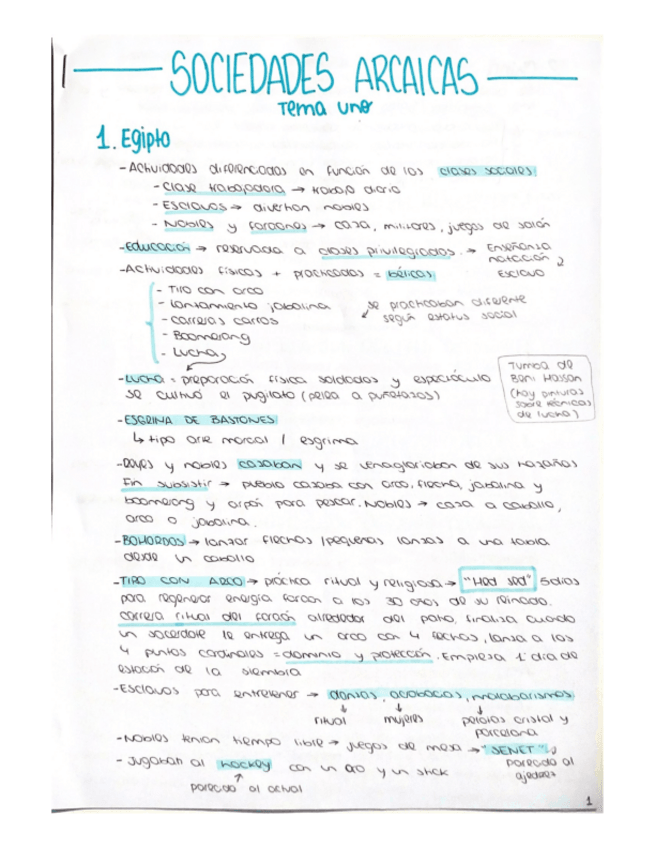 SOCIEDADES ARCAICAS
Tema uno
1. Egipto
- Actividades diferenciadas en función de las clases sociales:
- Clase trabajadora → trabajo diario
- Esclavos → divertian nobles
- Nobles y faraones → caza, militares, juegos de salón
- Educación → reservada a clases privilegiadas. → Enseñanza natación 2 esclavo
- Actividades físicas + practicadas = bélicas:
- Tiro con arco
- Lanzamiento jabalina
- Carreras carros
- Boomerang
- Lucha
se practicaban diferente
según estatus social
- Lucha = preparación física soldados y espectáculo
se cultivó el pugilato (pelea a puñetazos)
Tumba de
Beni Hassan
(hay pinturas
sobre técnicas
de lucha)
- ESGRINA DE BASTONES:
↳ tipo arte marcial / esgrima
- Reyes y nobles cazaban y se vanagloriaban de sus hazañas
Fin subsistir → pueblo cazaba con arco, flecha, jabalina y
boomerang y arpón para pescar. Nobles → caza a caballo,
arco o jabalina.
- BOHORDOS → lanzar flechas / pequeñas lanzas a una tabla
desde un caballo
- TIRO CON ARCO → práctica ritual y religiosa → "Hed sed" 5 días
para regenerar energía faraón a los 30 años de su reinado.
carrera ritual del faraón alrededor del patio, finaliza cuando
un sacerdote le entrega un arco con 4 flechas, lanza a los
4 puntos cardinales = dominio y protección. Empieza 1º día de
estación de la siembra
- Esclavos para entretener → danzas, acrobacias, malabarismos
ritual mujeres pelotas cristal y
porcelana
- Nobles tenian tiempo libre → juegos de mesa → "SENET"
parecido al
ajedrez
- Jugaban al hockey con un aro y un stick
parecido al actual
1